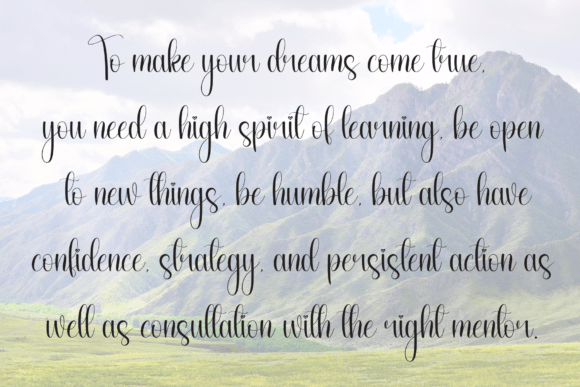 To make your dreams come true,
you need a high spirit of learning, be open
to new things, be humble, but also have
confidence, strategy, and persistent action as
well as consultation with the right mentor.